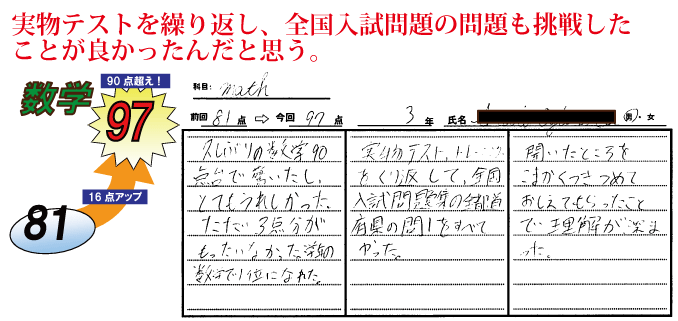 実物テストを繰り返し、全国入試問題の問題も挑戦した
ことが良かったんだと思う。
数学
90点超え！
97
16点アップ
81
科目: math
前回 81 点 ⇨ 今回 97 点 3 年 氏名 男・女
久しぶりの数学90
点台で驚いたし、
とてもうれしかった。
ただ3点分が
もったいなかった。学年の
数学で1位になれた。
実物テスト、トレーニング
をくり返して、全国
入試問題集の全都道
府県の問1をすべて
やった。
開いたところを
こまかくつきつめて
おしえてもらったこと
で理解が深ま
った。